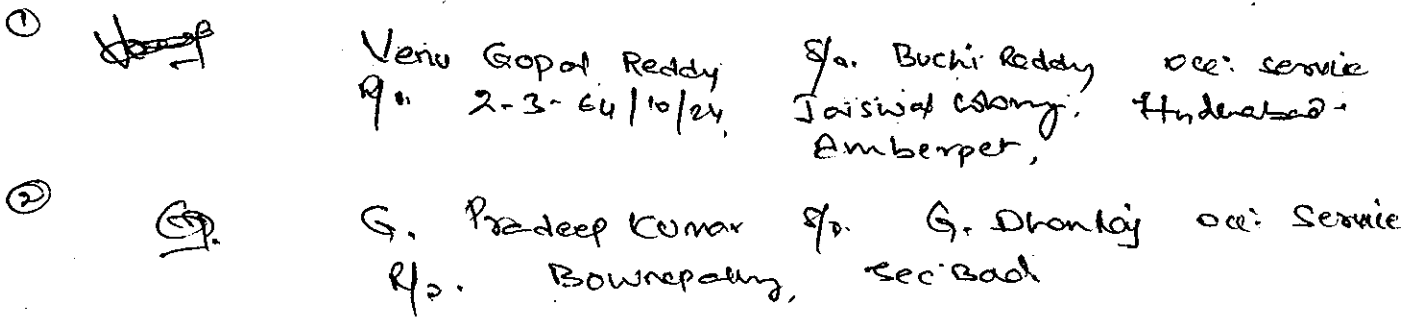 ① Venu Gopal Reddy S/o. Buchi Reddy occ: service
R/o. 2-3-64/10/24, Jaiswal Colony, Hyderabad.
Amberpet,
② GP. G. Pradeep Kumar S/o. G. Dhanraj occ: Service
R/o. Bowenpally, Sec'Bad